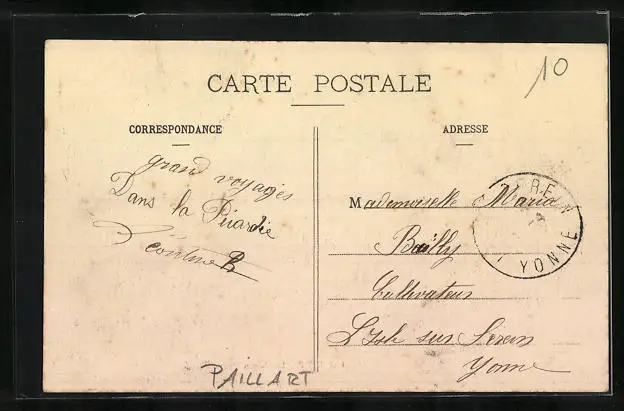 10
CARTE POSTALE
CORRESPONDANCE
grand voyages
Dans la Picardie
ADRESSE
Mademoiselle Maria
Bailly
Cultivateur
L'Isle sur Serein
Yonne
YONNE
PAILLART